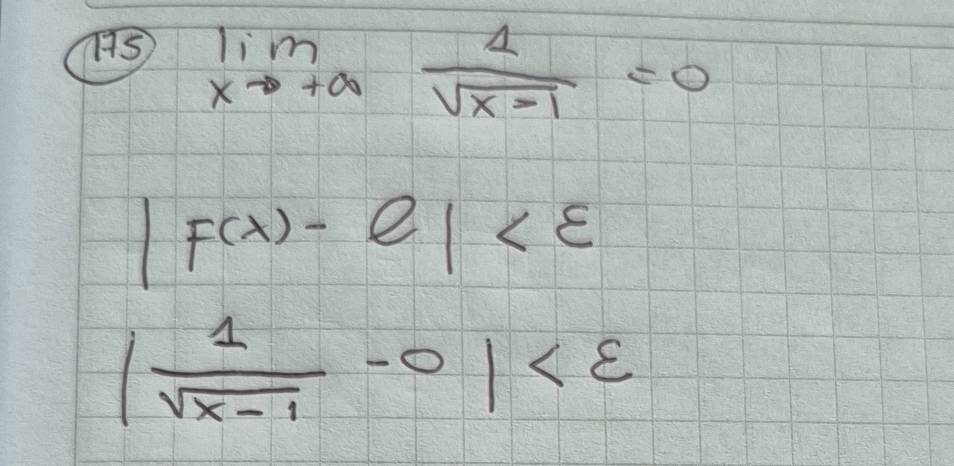 175 lim x→+∞ 1/√(x-1) = 0
|F(x) - l| < ε
|1/√(x-1) - 0| < ε